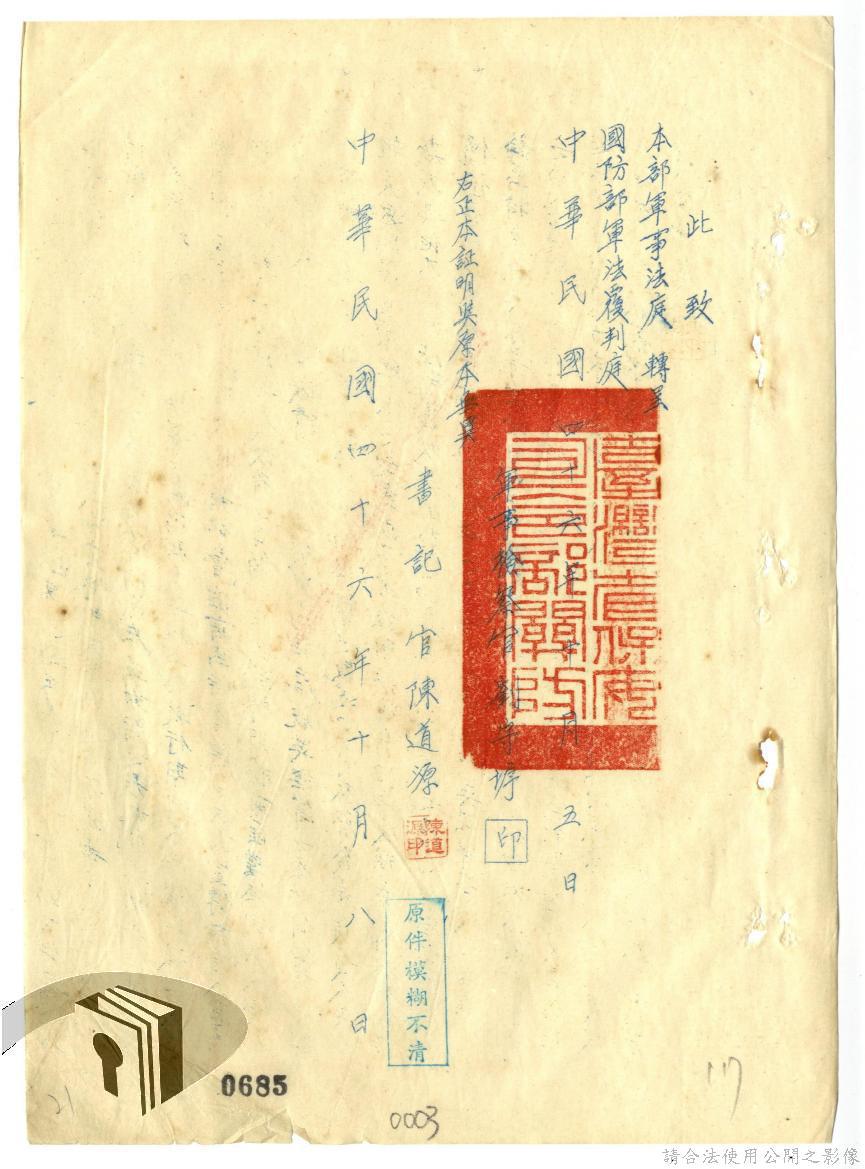 此致
本部軍事法庭 轉呈
國防部軍法覆判庭
中華民國四十六年十月五日
軍事檢察官
印
右正本証明與原本無異
書記官陳道源
陳道源印
中華民國四十六年十月八日
臺灣省保安司令部關防
原件模糊不清
0685
0003
117
21
請合法使用公開之影像